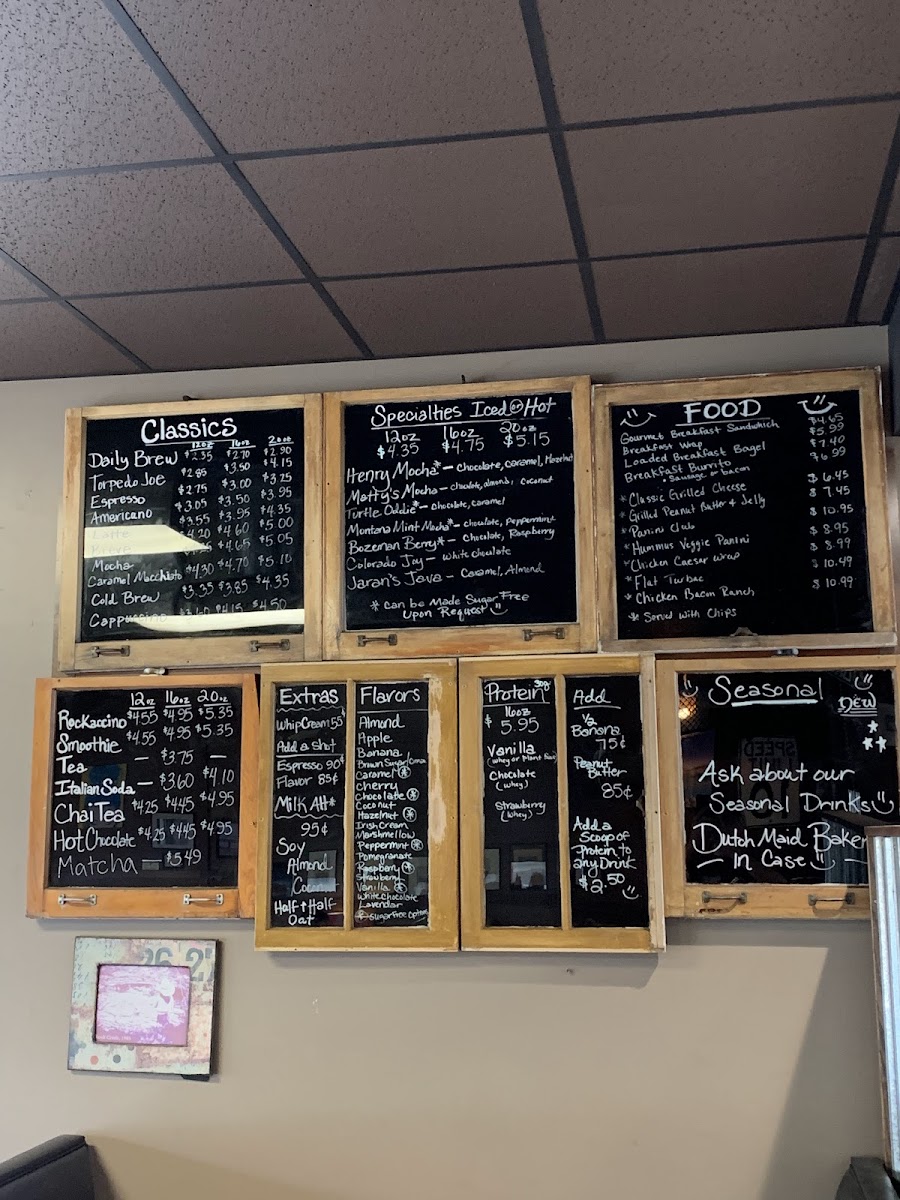 Classics
12oz 16oz 20oz
Daily Brew $2.35 $2.70 $2.90
Torpedo Joe $2.85 $3.50 $4.15
Espresso $2.75 $3.00 $3.25
Americano $3.05 $3.50 $3.95
Latte $3.55 $3.95 $4.35
Breve $4.20 $4.60 $5.00
Mocha $4.65 $5.05
Caramel Macchiato $4.30 $4.70 $5.10
Cold Brew $3.35 $3.85 $4.35
Cappuccino $4.15 $4.50
Specialties Iced or Hot
12oz 16oz 20oz
$4.35 $4.75 $5.15
Henry Mocha* - Chocolate, Caramel, Hazelnut
Matty's Mocha - chocolate, almond, Coconut
Turtle Oddie* - chocolate, caramel
Montana Mint Mocha* - chocolate, Peppermint
Bozeman Berry* - Chocolate, Raspberry
Colorado Joy - white chocolate
Jaran's Java - Caramel, Almond
* Can be Made Sugar Free
Upon Request
FOOD
Gourmet Breakfast Sandwhich $4.65
Breakfast Wrap $5.99
Loaded Breakfast Bagel $7.40
Breakfast Burrito $6.99
* Sausage or bacon
* Classic Grilled Cheese $6.45
* Grilled Peanut Butter & Jelly $7.45
* Panini Club $10.95
* Hummus Veggie Panini $8.95
* Chicken Caesar Wrap $8.99
* Flat Turbac $10.49
* Chicken Bacon Ranch $10.99
* Served with Chips
12oz 16oz 20oz
Rockaccino $4.55 $4.95 $5.35
Smoothie $4.55 $4.95 $5.35
Tea — $3.75 —
Italian Soda — $3.60 $4.10
Chai Tea $4.25 $4.45 $4.95
Hot Chocolate $4.25 $4.45 $4.95
Matcha $5.49
Extras
Whip Cream 55¢
Add a Shot
Espresso 90¢
Flavor 85¢
Milk Alt*
95¢
Soy
Almond
Coconut
Half + Half
Oat
Flavors
Almond
Apple
Banana
Brown Sugar Cinna
Caramel *
Cherry
Chocolate *
Coconut
Hazelnut *
Irish Cream
Marshmellow
Peppermint *
Pomegranate
Raspberry *
Strawberry
Vanilla *
White Chocolate
Lavendar
* Sugar Free Option
Protein 30g
16oz
$5.95
Vanilla
(Whey or Plant Based)
Chocolate
(whey)
Strawberry
(whey)
Add
1/2
Banana
75¢
Peanut
Butter
85¢
Add a
Scoop of
Protein to
any Drink
$2.50
Seasonal
new
Ask about our
Seasonal Drinks
Dutch Maid Baker
In Case
26.2